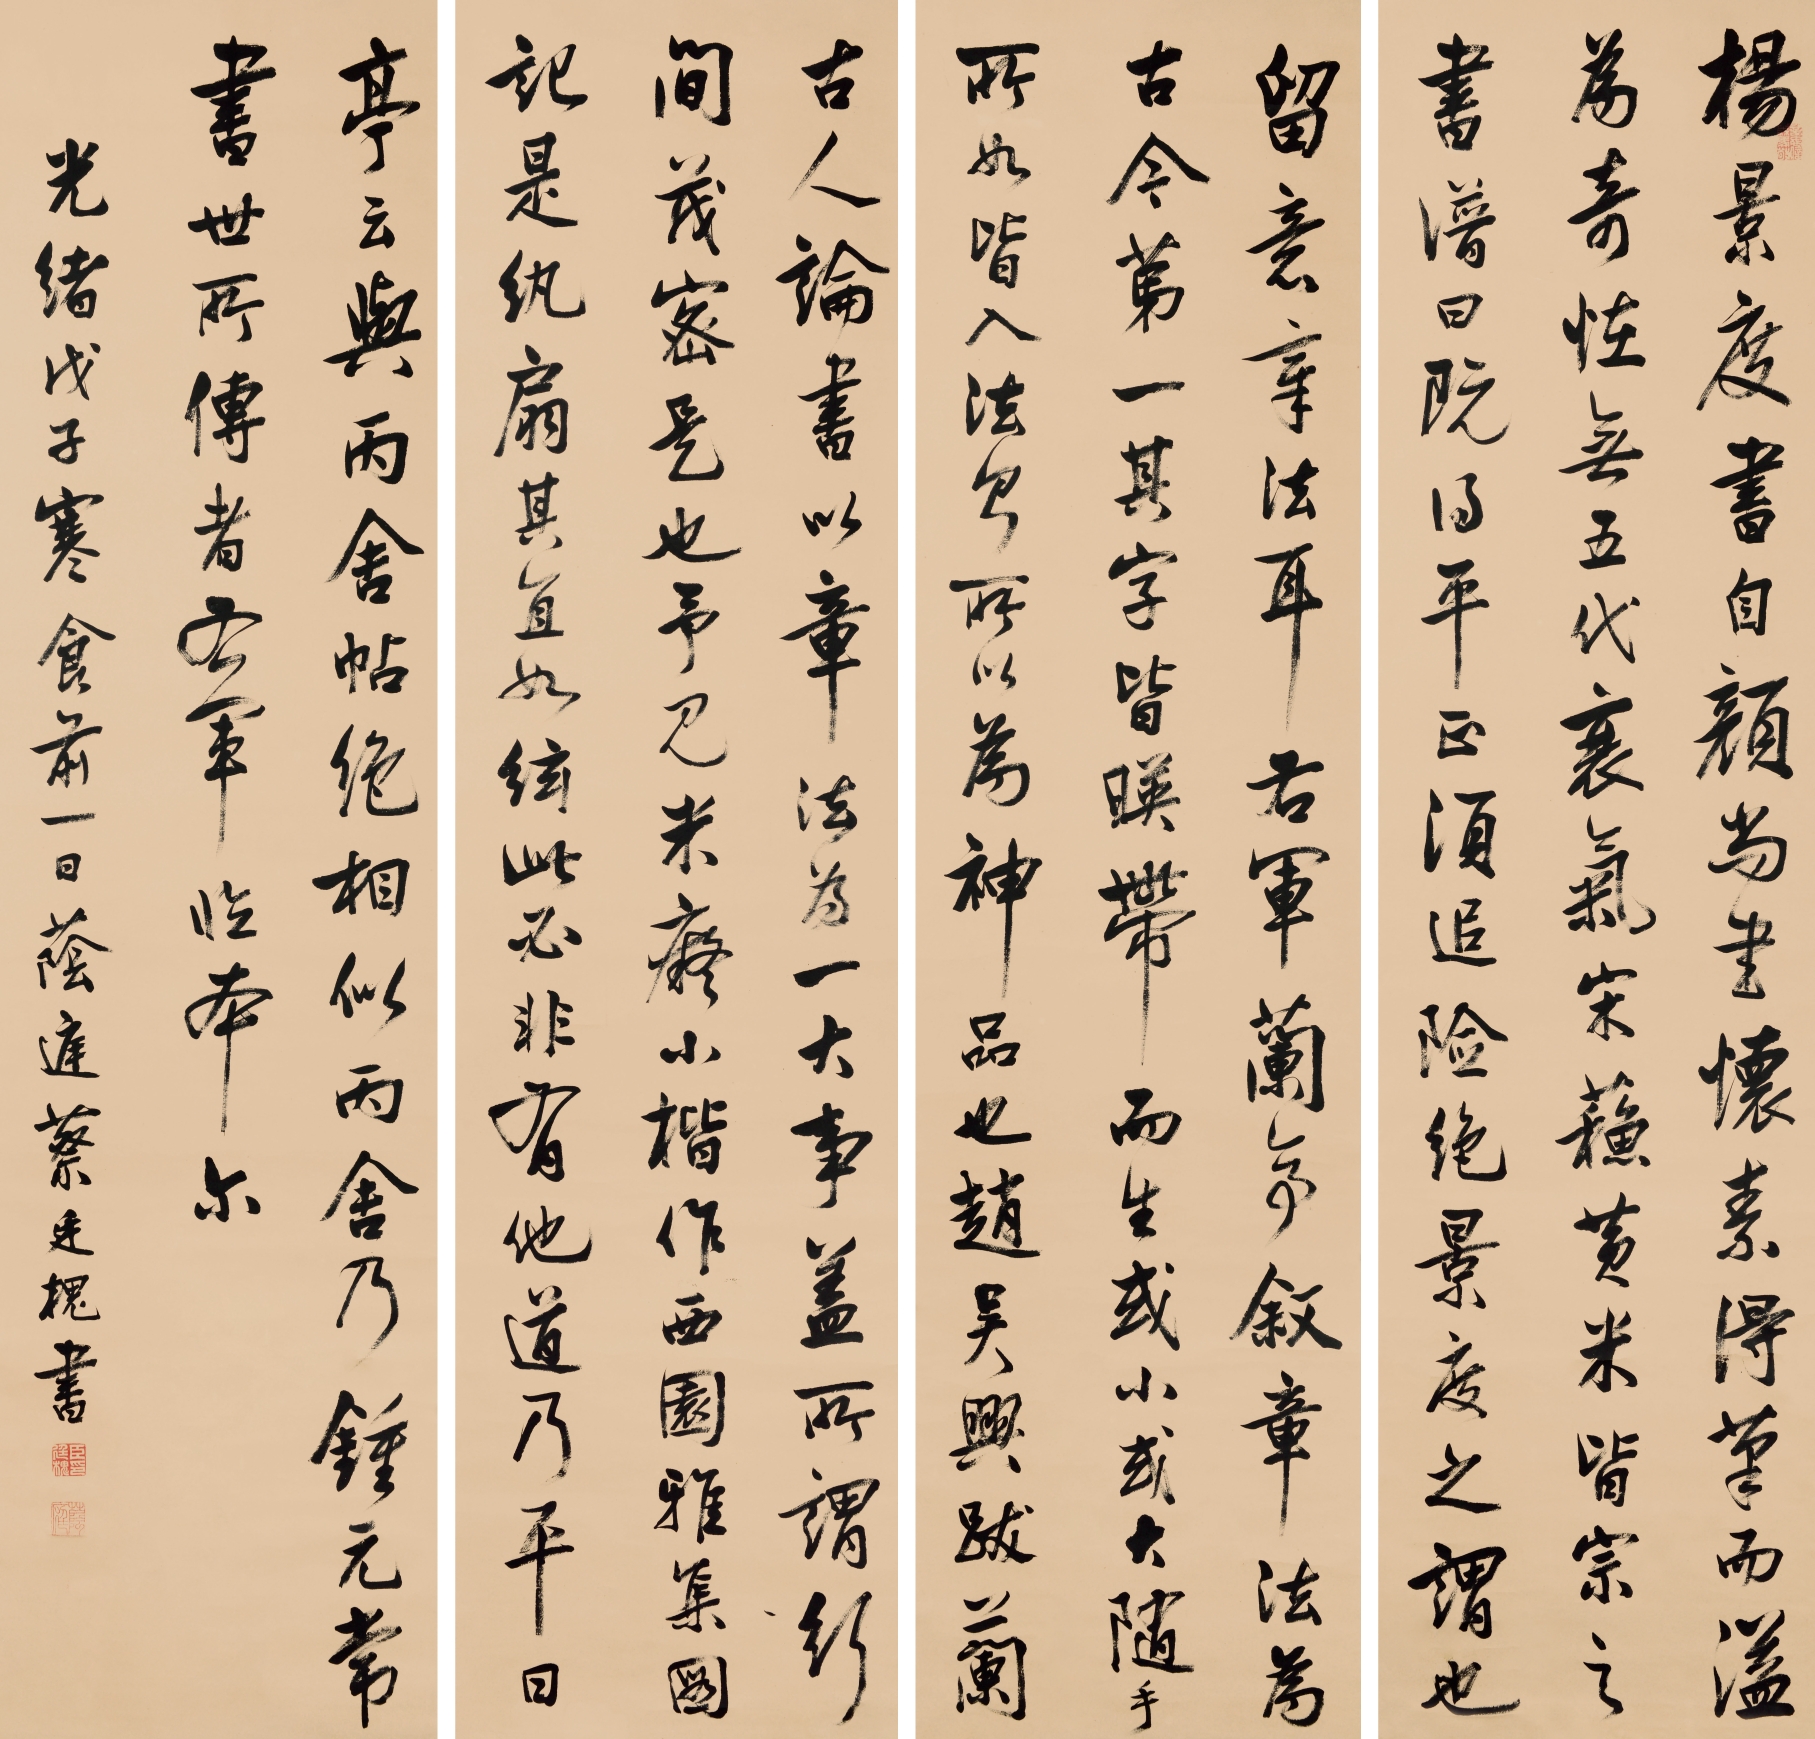 楊景度書自顏尚書懷素得筆而溢
為奇恠無五代衰氣宋蘇黃米皆宗之
書譜曰既得平正須追險絕景度之謂也
留意章法耳右軍蘭亭敘章法為
古今第一其字皆暎帶而生或小或大隨手
所如皆入法則所以為神品也趙吳興跋蘭
古人論書以章法為一大事蓋所謂行
間茂密是也予見米癡小楷作西園雅集圖
記是紈扇其直如絃此必非有他道乃平日
亭云與丙舍帖絕相似丙舍乃鍾元常
書世所傳者右軍臨本尓
光緒戊子寒食前一日蔭蓭蔡廷槐書